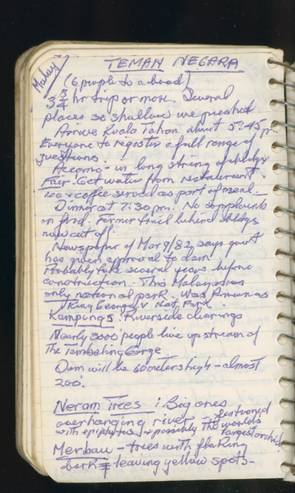 Malay
TEMAN NEGARA
(6 people to a boat)
3 3/4 hr trip or more. Several
places so shallow we pushed.
Arrive Kuala Tahan about 5:45 p
Everyone to register & full range of
questions.
Accomo - in long string of bldgs
Fair. Get water from restaurant
tea & coffee served as part of meal.
Dinner at 7:30 pm. No complaints
on food. Former trail behind bldgs
now cut off.
Newspaper of Mar 9/82 says govt
has given approval to dam
Probably take several years before
construction. This Malaysias
only national park. Was known as
King George V Nat. Park
Kampongs: Riverside clearings
Nearly 3000 people live upstream of
The Tambeling Gorge
Dam will be 60 meters high - almost
200'.
Neram Trees: Big ones
overhanging river - festooned
with epiphytes & possibly the worlds
largest orchid
Merbau - trees with flaking
bark leaving yellow spots -